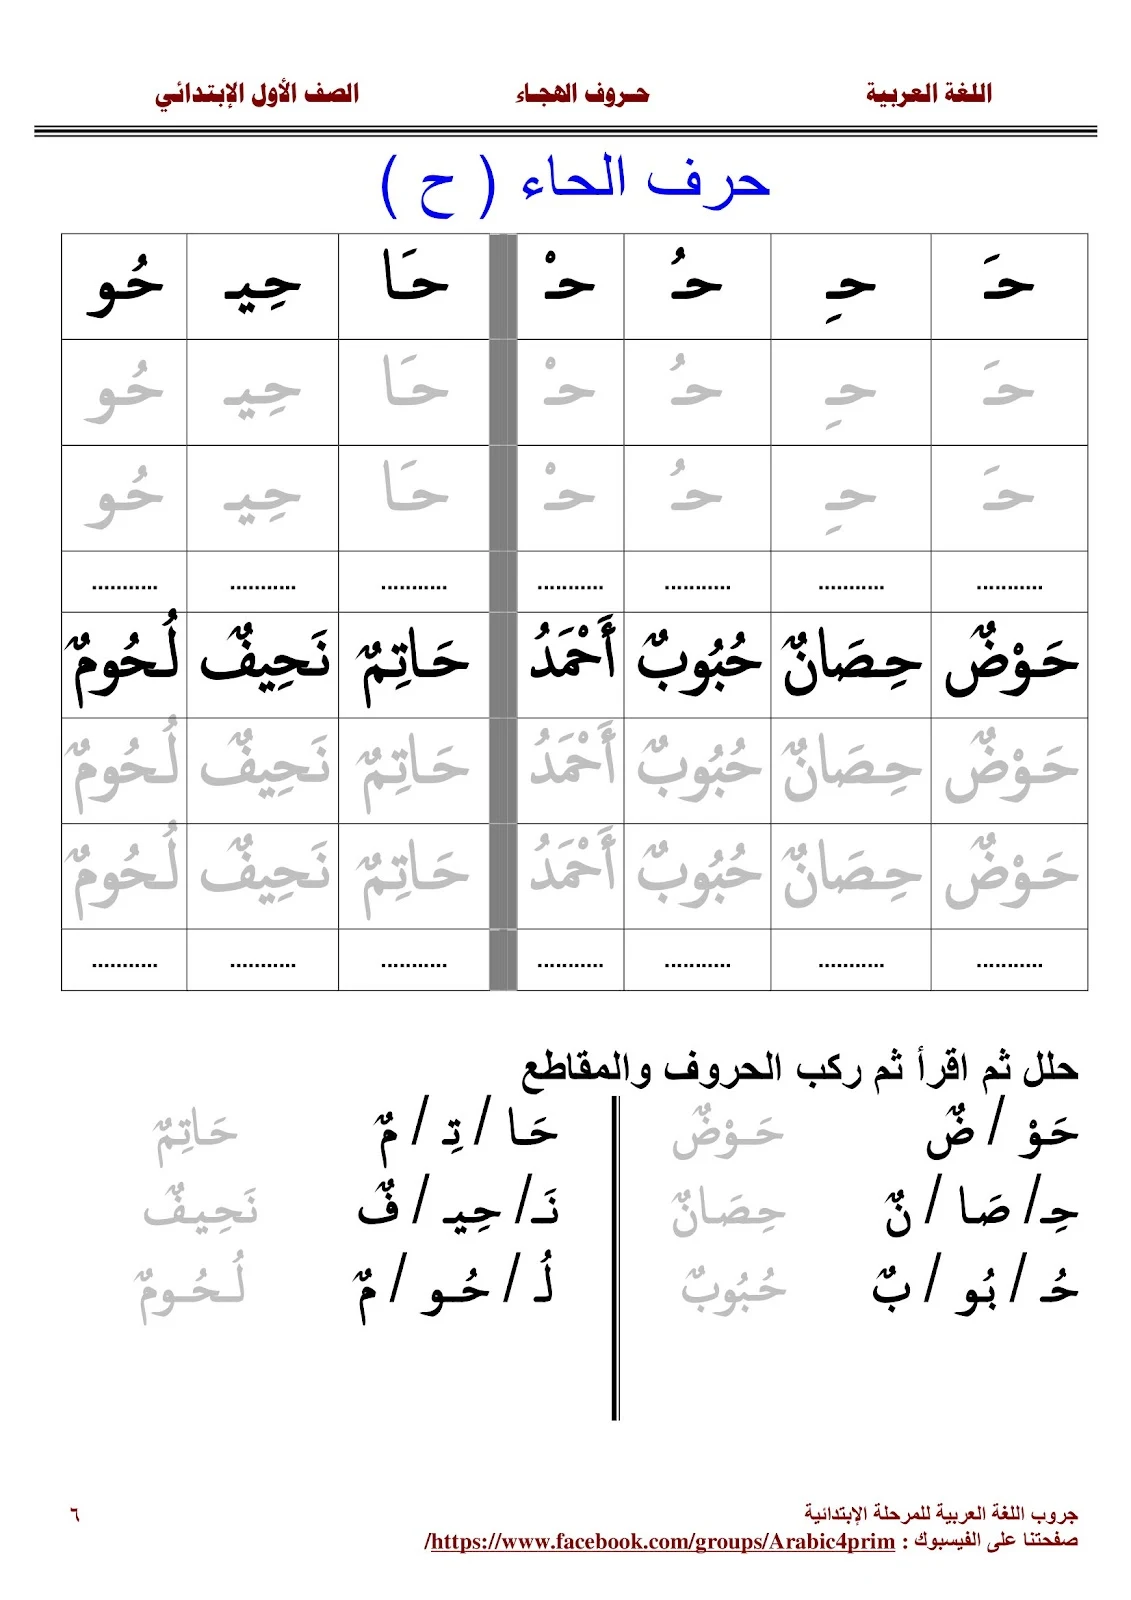 اللغة العربية حـروف الهجـاء الصف الأول الإبتدائي
حرف الحاء ( ح )
حَـ حِـ حُـ حْـ حَـا حِيـ حُـو
حَـ حِـ حُـ حْـ حَـا حِيـ حُـو
حَـ حِـ حُـ حْـ حَـا حِيـ حُـو
........... ........... ........... ........... ........... ........... ...........
حَـوْضٌ حِـصَـانٌ حُبُوبٌ أَحْمَدُ حَـاتِمٌ نَحِيفٌ لُـحُومٌ
حَـوْضٌ حِـصَـانٌ حُبُوبٌ أَحْمَدُ حَـاتِمٌ نَحِيفٌ لُـحُومٌ
حَـوْضٌ حِـصَـانٌ حُبُوبٌ أَحْمَدُ حَـاتِمٌ نَحِيفٌ لُـحُومٌ
........... ........... ........... ........... ........... ........... ...........
حلل ثم اقرأ ثم ركب الحروف والمقاطع
حَـوْ / ضٌ حَـوْضٌ حَـا / تِـ / مٌ حَـاتِمٌ
حِـ/ صَـا / نٌ حِـصَـانٌ نَـ/ حِيـ / فٌ نَحِيـفٌ
حُـ / بُو / بٌ حُبُوبٌ لُـ / حُـو / مٌ لُـحُـومٌ
جروب اللغة العربية للمرحلة الإبتدائية ٦
صفحتنا على الفيسبوك : https://www.facebook.com/groups/Arabic4prim/